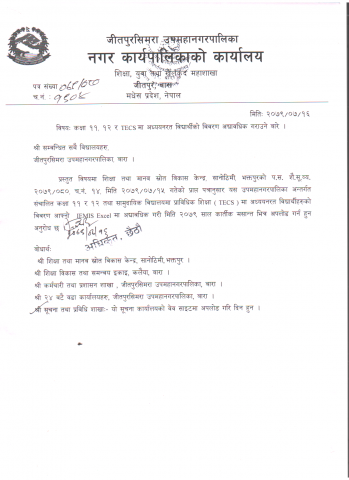 जीतपुरसिमरा उपमहानगरपालिका
नगर कार्यपालिकाको कार्यालय
शिक्षा, युवा तथा खेलकुद महाशाखा
जीतपुर, बारा
मधेस प्रदेश, नेपाल
पत्र संख्या ०७९/०८०
च.नं.:
मितिः २०७९/०७/१६
विषयः कक्षा ११, १२ र TECS मा अध्ययनरत विद्यार्थीको विवरण अद्यावधिक गराउने बारे ।
श्री सम्बन्धित सबै विद्यालयहरु,
जीतपुरसिमरा उपमहानगरपालिका, बारा ।
प्रस्तुत विषयमा शिक्षा तथा मानव स्रोत विकास केन्द्र, सानोठिमी, भक्तपुरको प.स. शै.सू.व्य.
२०७९/०८०, च.नं. १४, मिति २०७९/०७/१५ गतेको प्राप्त पत्रानुसार यस उपमहानगरपालिका अन्तर्गत
संचालित कक्षा ११ र १२ तथा सामुदायिक विद्यालयमा प्राविधिक शिक्षा ( TECS ) मा अध्ययनरत विद्यार्थीहरुको
विवरण आफ्नो IEMIS Excel मा अद्यावधिक गरी मिति २०७९ साल कार्तिक मसान्त भित्र अपलोड गर्न हुन
अनुरोध छ ।
बोधार्थः
श्री शिक्षा तथा मानव स्रोत विकास केन्द्र, सानोठिमी, भक्तपुर ।
श्री शिक्षा विकास तथा समन्वय इकाइ, कलैया, बारा ।
श्री कर्मचारी तथा प्रशासन शाखा , जीतपुरसिमरा उपमहानगरपालिका, बारा ।
श्री २४ वटै वडा कार्यालयहरु, जीतपुरसिमरा उपमहानगरपालिका, बारा ।
श्री सूचना तथा प्रविधि शाखाः- यो सूचना कार्यालयको वेब साइटमा अपलोड गरि दिन हुन ।